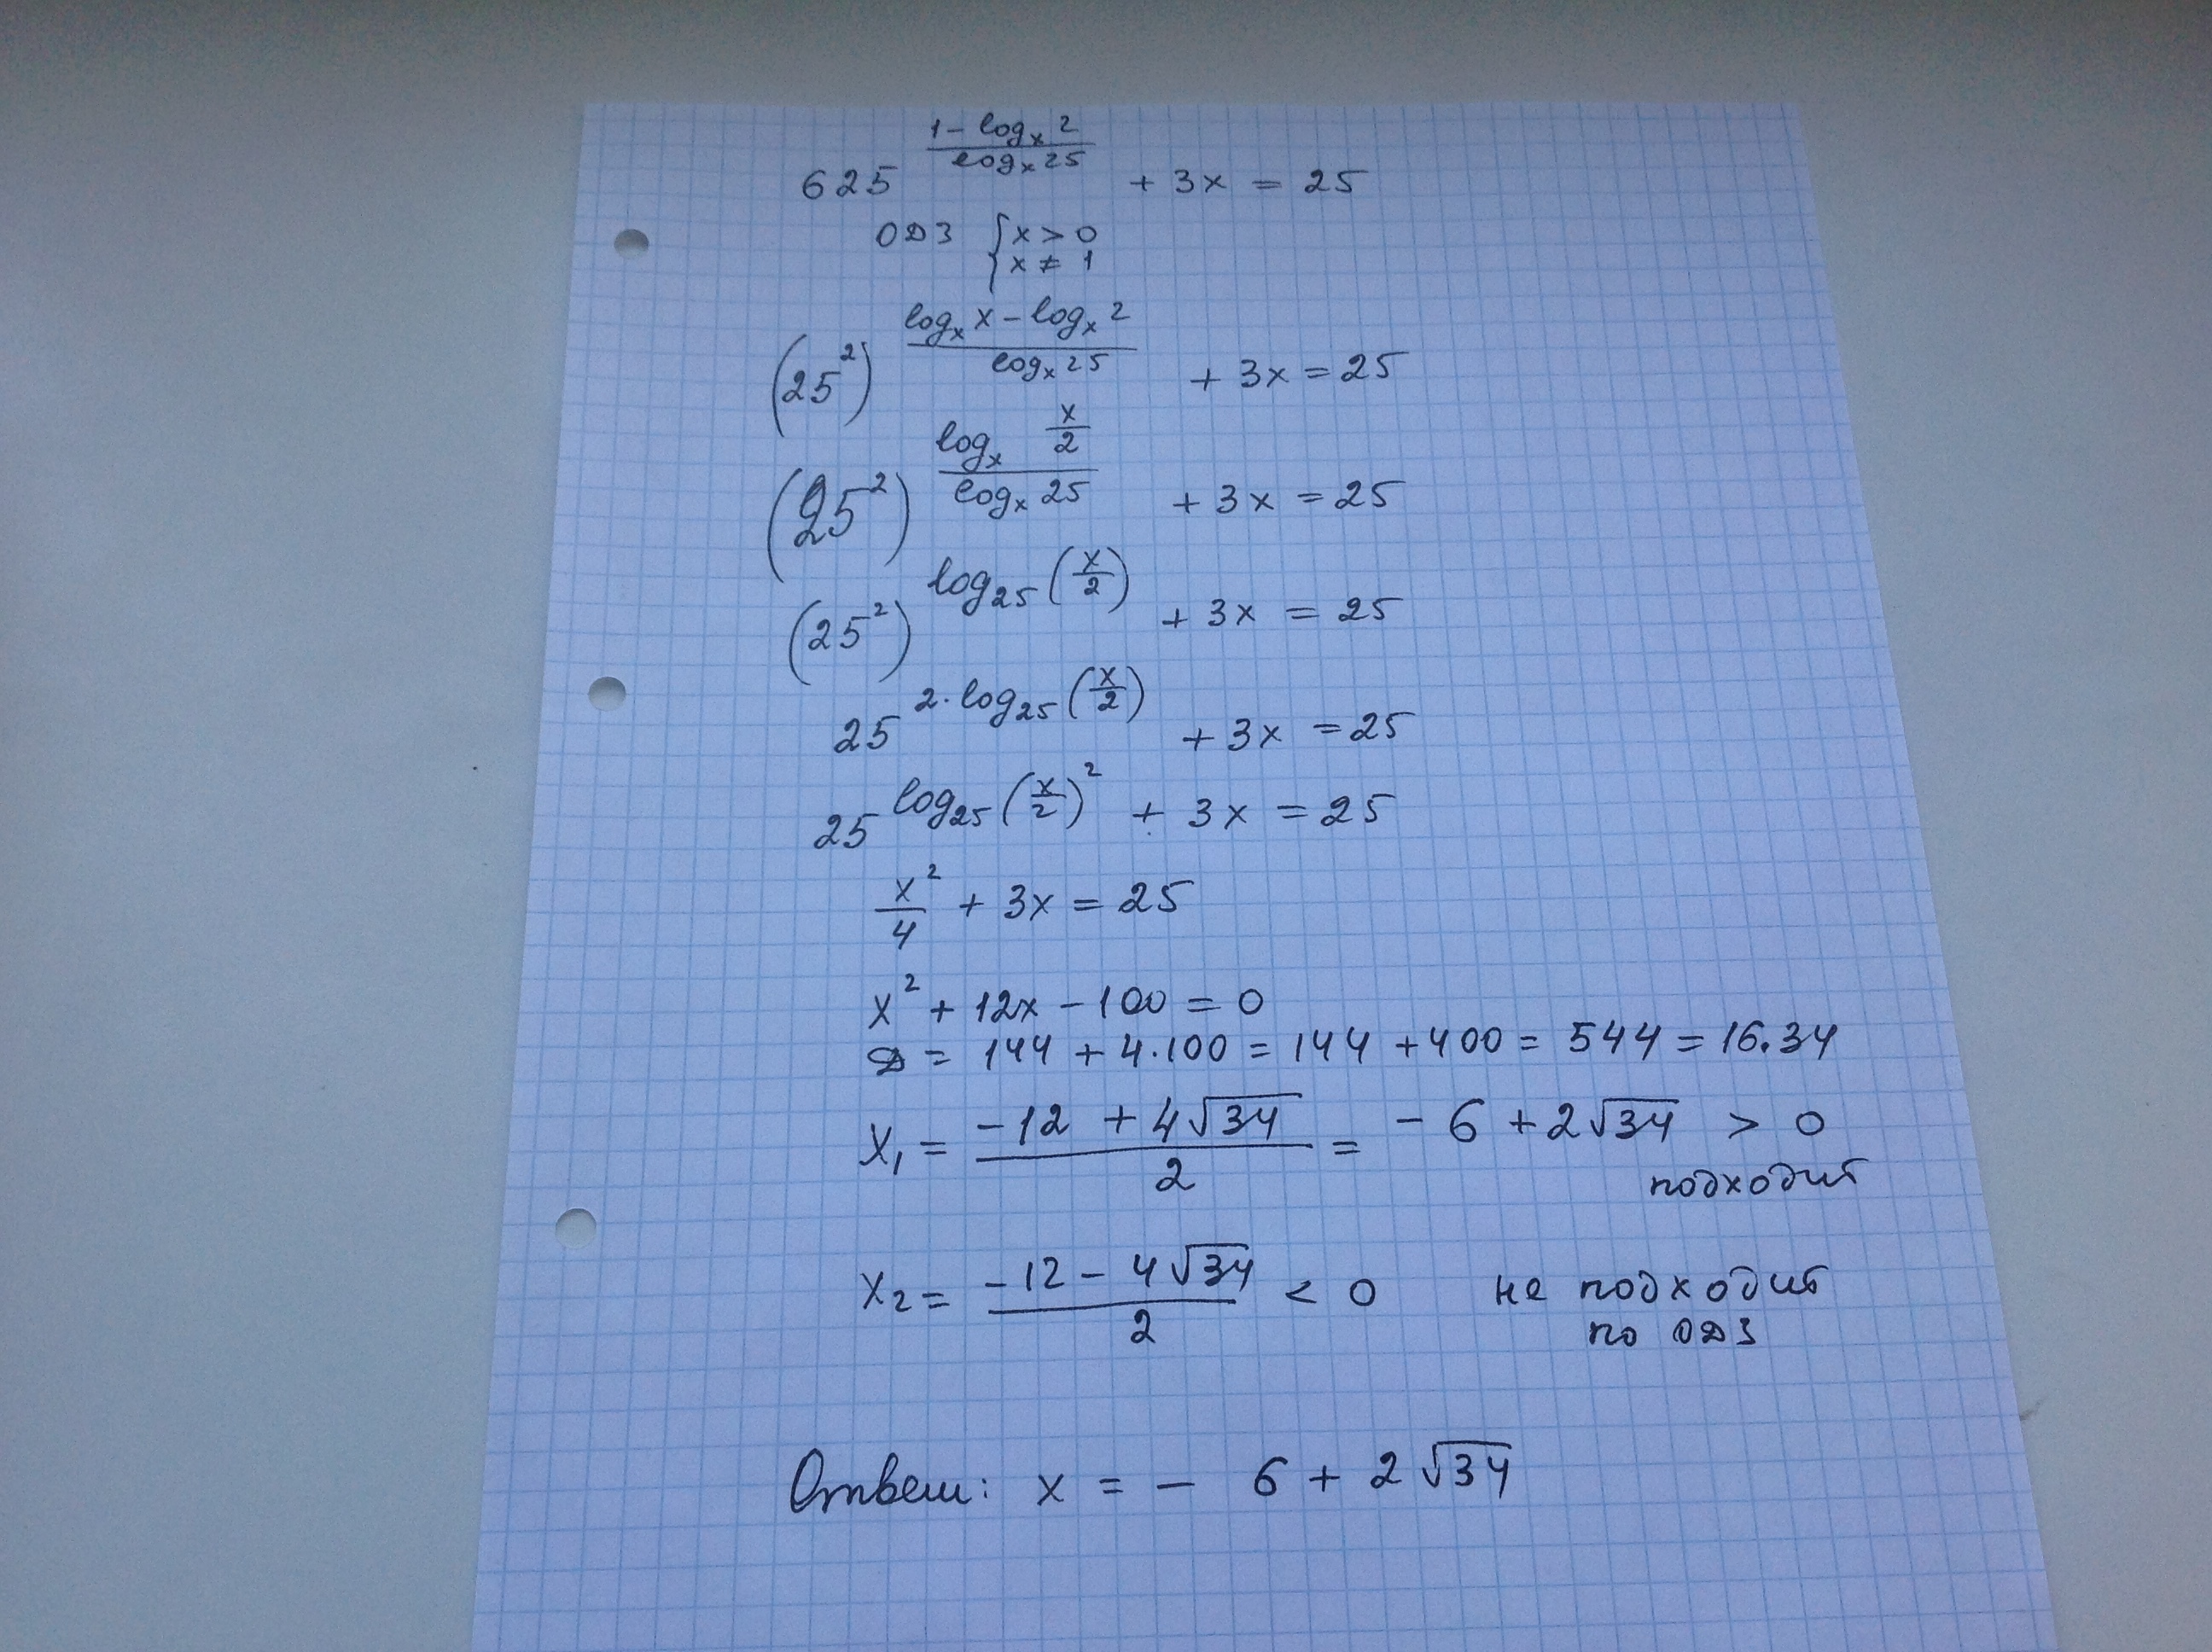 625^((1 - log_x 2)/(log_x 25)) + 3x = 25
ОДЗ { x > 0
x ≠ 1
(25²)^((log_x x - log_x 2)/(log_x 25)) + 3x = 25
(25²)^((log_x x/2)/(log_x 25)) + 3x = 25
(25²)^(log_25 (x/2)) + 3x = 25
25^(2·log_25 (x/2)) + 3x = 25
25^(log_25 (x/2)²) + 3x = 25
x²/4 + 3x = 25
x² + 12x - 100 = 0
D = 144 + 4·100 = 144 + 400 = 544 = 16·34
x₁ = (-12 + 4√34)/2 = -6 + 2√34 > 0
подходит
x₂ = (-12 - 4√34)/2 < 0 не подходит
по ОДЗ
Ответ: x = - 6 + 2√34